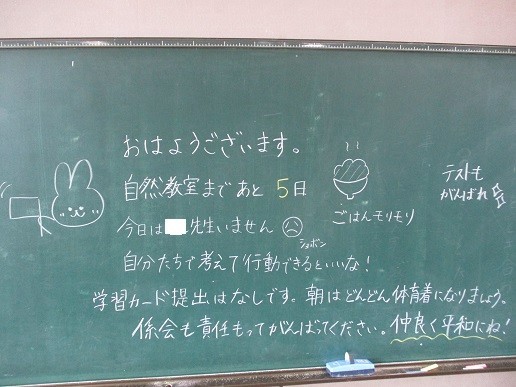 おはようございます。
自然教室まであと 5日
今日は 先生いません
ションボン
自分たちで考えて行動できるといいな!
学習カード提出はなしです。朝はどんどん体育着になりましょう。
係会も責任もってがんばってください。仲良く平和にね!
ごはんモリモリ
テストも
がんばれ